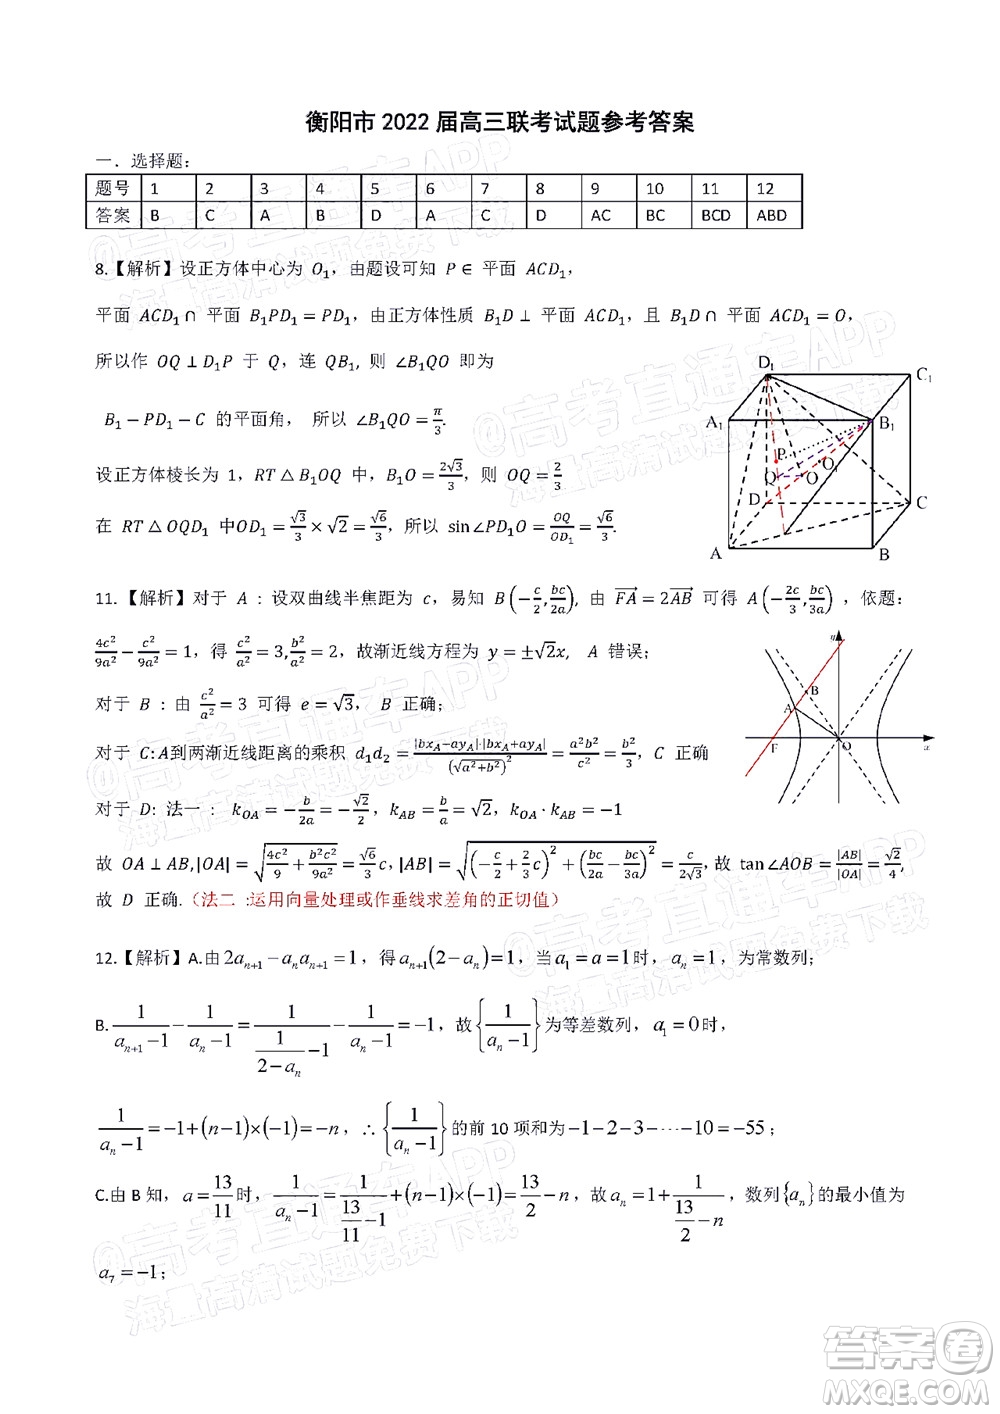 衡阳市 2022 届高三联考试题参考答案
一．选择题：
题号 1 2 3 4 5 6 7 8 9 10 11 12
答案 B C A B D A C D AC BC BCD ABD
8.【解析】设正方体中心为 O₁，由题设可知 P∈ 平面 ACD₁，
平面 ACD₁∩ 平面 B₁PD₁=PD₁，由正方体性质 B₁D⊥ 平面 ACD₁，且 B₁D∩ 平面 ACD₁=O，
所以作 OQ⊥D₁P 于 Q，连 QB₁, 则 ∠B₁QO 即为
B₁−PD₁−C 的平面角， 所以 ∠B₁QO=π/3.
设正方体棱长为 1，RT△B₁OQ 中，B₁O=2√3/3，则 OQ=2/3
在 RT△OQD₁ 中OD₁=√3/3×√2=√6/3，所以 sin∠PD₁O=OQ/OD₁=√6/3.
D₁ C₁ A₁ B₁ P O₁ Q O D C A B
11.【解析】对于 A：设双曲线半焦距为 c，易知 B(−c/2, bc/2a), 由 FA=2AB 可得 A(−2c/3, bc/3a) ，依题：
4c²/9a²−c²/9a²=1，得 c²/a²=3, b²/a²=2，故渐近线方程为 y=±√2x, A 错误；
对于 B：由 c²/a²=3 可得 e=√3， B 正确；
对于 C:A到两渐近线距离的乘积 d₁d₂=|bx_A−ay_A|·|bx_A+ay_A|/(√(a²+b²))²=a²b²/c²=b²/3，C 正确
对于 D: 法一： k_OA=−b/2a=−√2/2，k_AB=b/a=√2，k_OA·k_AB=−1
故 OA⊥AB,|OA|=√(4c²/9+b²c²/9a²)=√6/3c，|AB|=√((−c/2+2/3c)²+(bc/2a−bc/3a)²)=c/2√3，故 tan∠AOB=|AB|/|OA|=√2/4,
故 D 正确.（法二 :运用向量处理或作垂线求差角的正切值）
B A F O x
12.【解析】A.由2aₙ₊₁−aₙaₙ₊₁=1，得aₙ₊₁(2−aₙ)=1，当a₁=a=1时，aₙ=1，为常数列；
B.1/(aₙ₊₁−1)−1/(aₙ−1)=1/(1/(2−aₙ)−1)−1/(aₙ−1)=−1，故{1/(aₙ−1)}为等差数列，a₁=0时，
1/(aₙ−1)=−1+(n−1)×(−1)=−n，∴{1/(aₙ−1)}的前 10 项和为−1−2−3−⋯−10=−55；
C.由 B 知，a=13/11时，1/(aₙ−1)=1/(13/11−1)+(n−1)×(−1)=13/2−n，故aₙ=1+1/(13/2−n)，数列{aₙ}的最小值为
a₇=−1；
@高考直通车APP
海量高清试题免费下载
答案圈
MXQE.COM